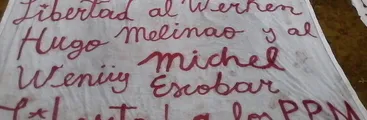 Libertad al Werken
Hugo Melinao y al
Michel
Weniiy Escobar
PPM